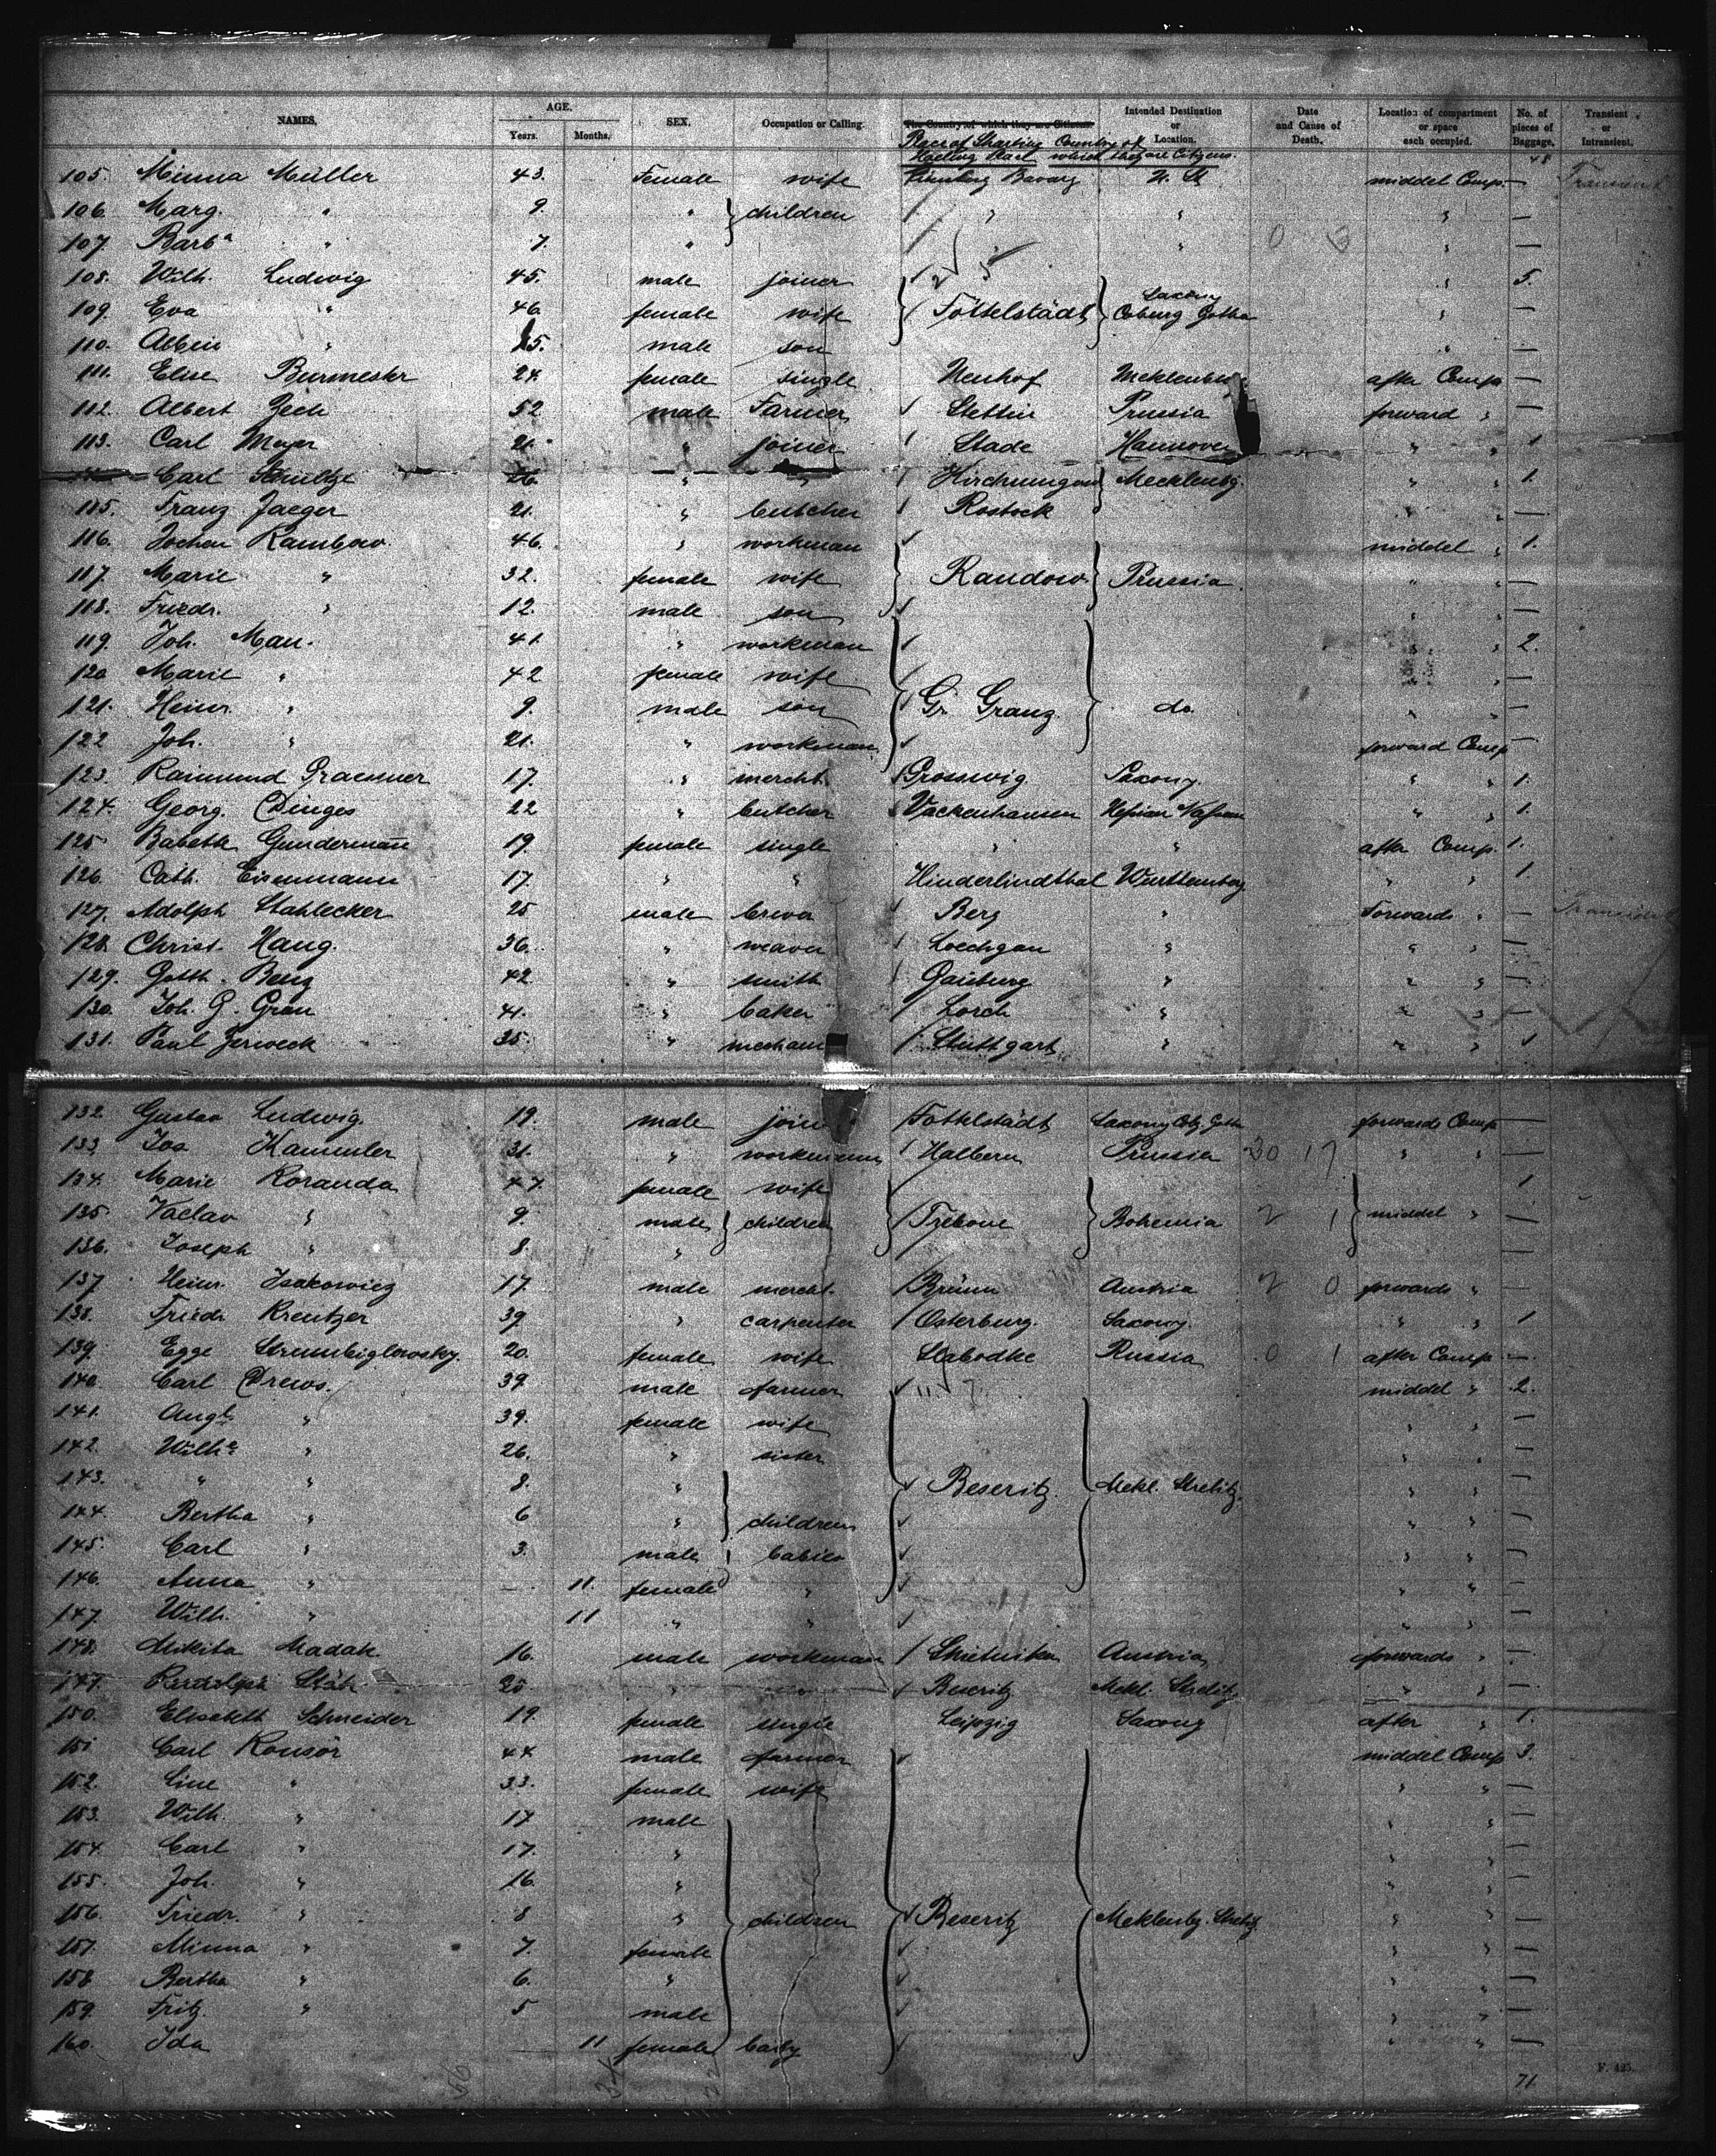 NAMES. AGE. Years. Months. SEX. Occupation or Calling. The Country of which they are Citizens. Intended Destination or Location. Date and Cause of Death. Location of compartment or space each occupied. No. of pieces of Baggage. Transient or Intransient.
Place of Starting Country of which they are Citizens.
48
105. Minna Müller 43. Female wife Bavary U. St middel Comp. — Transient
106. Marg. " 9. " } children " " " —
107. Barbª " 7. " " " " —
108. Wilh. Ludwig 45. male joiner " 5.
109. Eva " 46. female wife } Töttelstädt } Saxony Coburg Gotha " —
110. Albin " 15. male son " —
111. Elise Burmester 24. female single Neuhof Meklenbu after Comp —
112. Albert Zech 52 male Farmer Stettin Prussia forward " —
113. Carl Meyer 21. " joiner Stade Hannover " " 1
Carl Schultze 26. " " Mecklenbg. " " 1.
115. Franz Jaeger 21. " butcher Rostock " " —
116. Jochen Rambow. 46. " workman middel " 1.
117. Marie " 32. female wife } Randow. } Prussia " —
118. Friedr. " 12. male son " " —
119. Joh. Mau. 41. " workman " " 2.
120 Marie " 42 female wife " " —
121. Heinr. " 9. male son Gr. Granz. do. " " —
122 Joh. " 21. " workman forward Comp —
123. Raimund Graessner 17. " mercht. Grosswig. Saxony. " " 1.
124. Georg. Dinges 22 " butcher Vackenhausen Hessian Nassau " " 1.
125 Babette Gundermann 19. female single " " after Comp. 1.
126. Cath. Eisenmann 17. " " Hinderlindthal Wurttemberg " " 1.
127. Adolph Stahlecker 25 male brewer Berg " Forwards " — Transient
128. Christ. Haug. 36. " weaver Loechgau " " " —
129. Gotth. Benz 42. " smith Gaisburg " " " —
130. Joh. G. Grau 41. " baker Lorch " " " —
131. Paul Zerweck 35. " mechani Stuttgart " " " 1
132. Gustav Ludwig. 19. male joiner Töttelstädt Saxony Cbg. Goth. forwards Comp —
133. Jos Kammler 31. " workmann Halbern Prussia 30 17 " " —
134. Marie Koranda 47. female wife 1
135. Vaclav " 9. male } children } Trebone } Bohemia 2 1 } middel " —
136. Joseph " 8. " —
137. Heinr. Isakowicz 17. male mercht. Brünn Austria 2 0 forwards " —
138. Friedr Kreutzer 39. " carpenter Osterburg. Saxony. " " 1
139. Egge Strumbiglowsky. 20. female wife Slabodke Russia 0 1 after Comp. —
140. Carl Drews. 39. male farmer middel " 2.
141. Augte " 39. female wife " " —
142. Wilhe " 26. " sister " " —
143. " " 8. " Beseritz. Mekl. Strelitz. " " —
144. Bertha " 6 " } children " " —
145. Carl " 3. male babies " " —
146. Anna " — 11. female " " " —
147. Wilh. " 11 " " " " —
148. Mikita Madak. 16. male workman Austria forwards " —
149. Rudolph Stäh 25 " " Beseritz Mekl. Strelitz " " —
150. Elisabeth Schneider 19. female single Leipzig Saxony after " 1.
151 Carl Konsor 44 male farmer middel Comp 3.
152. Line " 33. female wife " " —
153. Wilh. " 17 male " " —
154. Carl " 17. " " " —
155. Joh. " 16. " " " —
156. Friedr. " 8 " } children } Beseritz Meklenbg. Strelitz. " " —
157. Minna " 7. female " " —
158 Bertha " 6. " " " —
159. Fritz. " 5 male " " —
160. Ida 11 female baby " " —
F. 425.
71